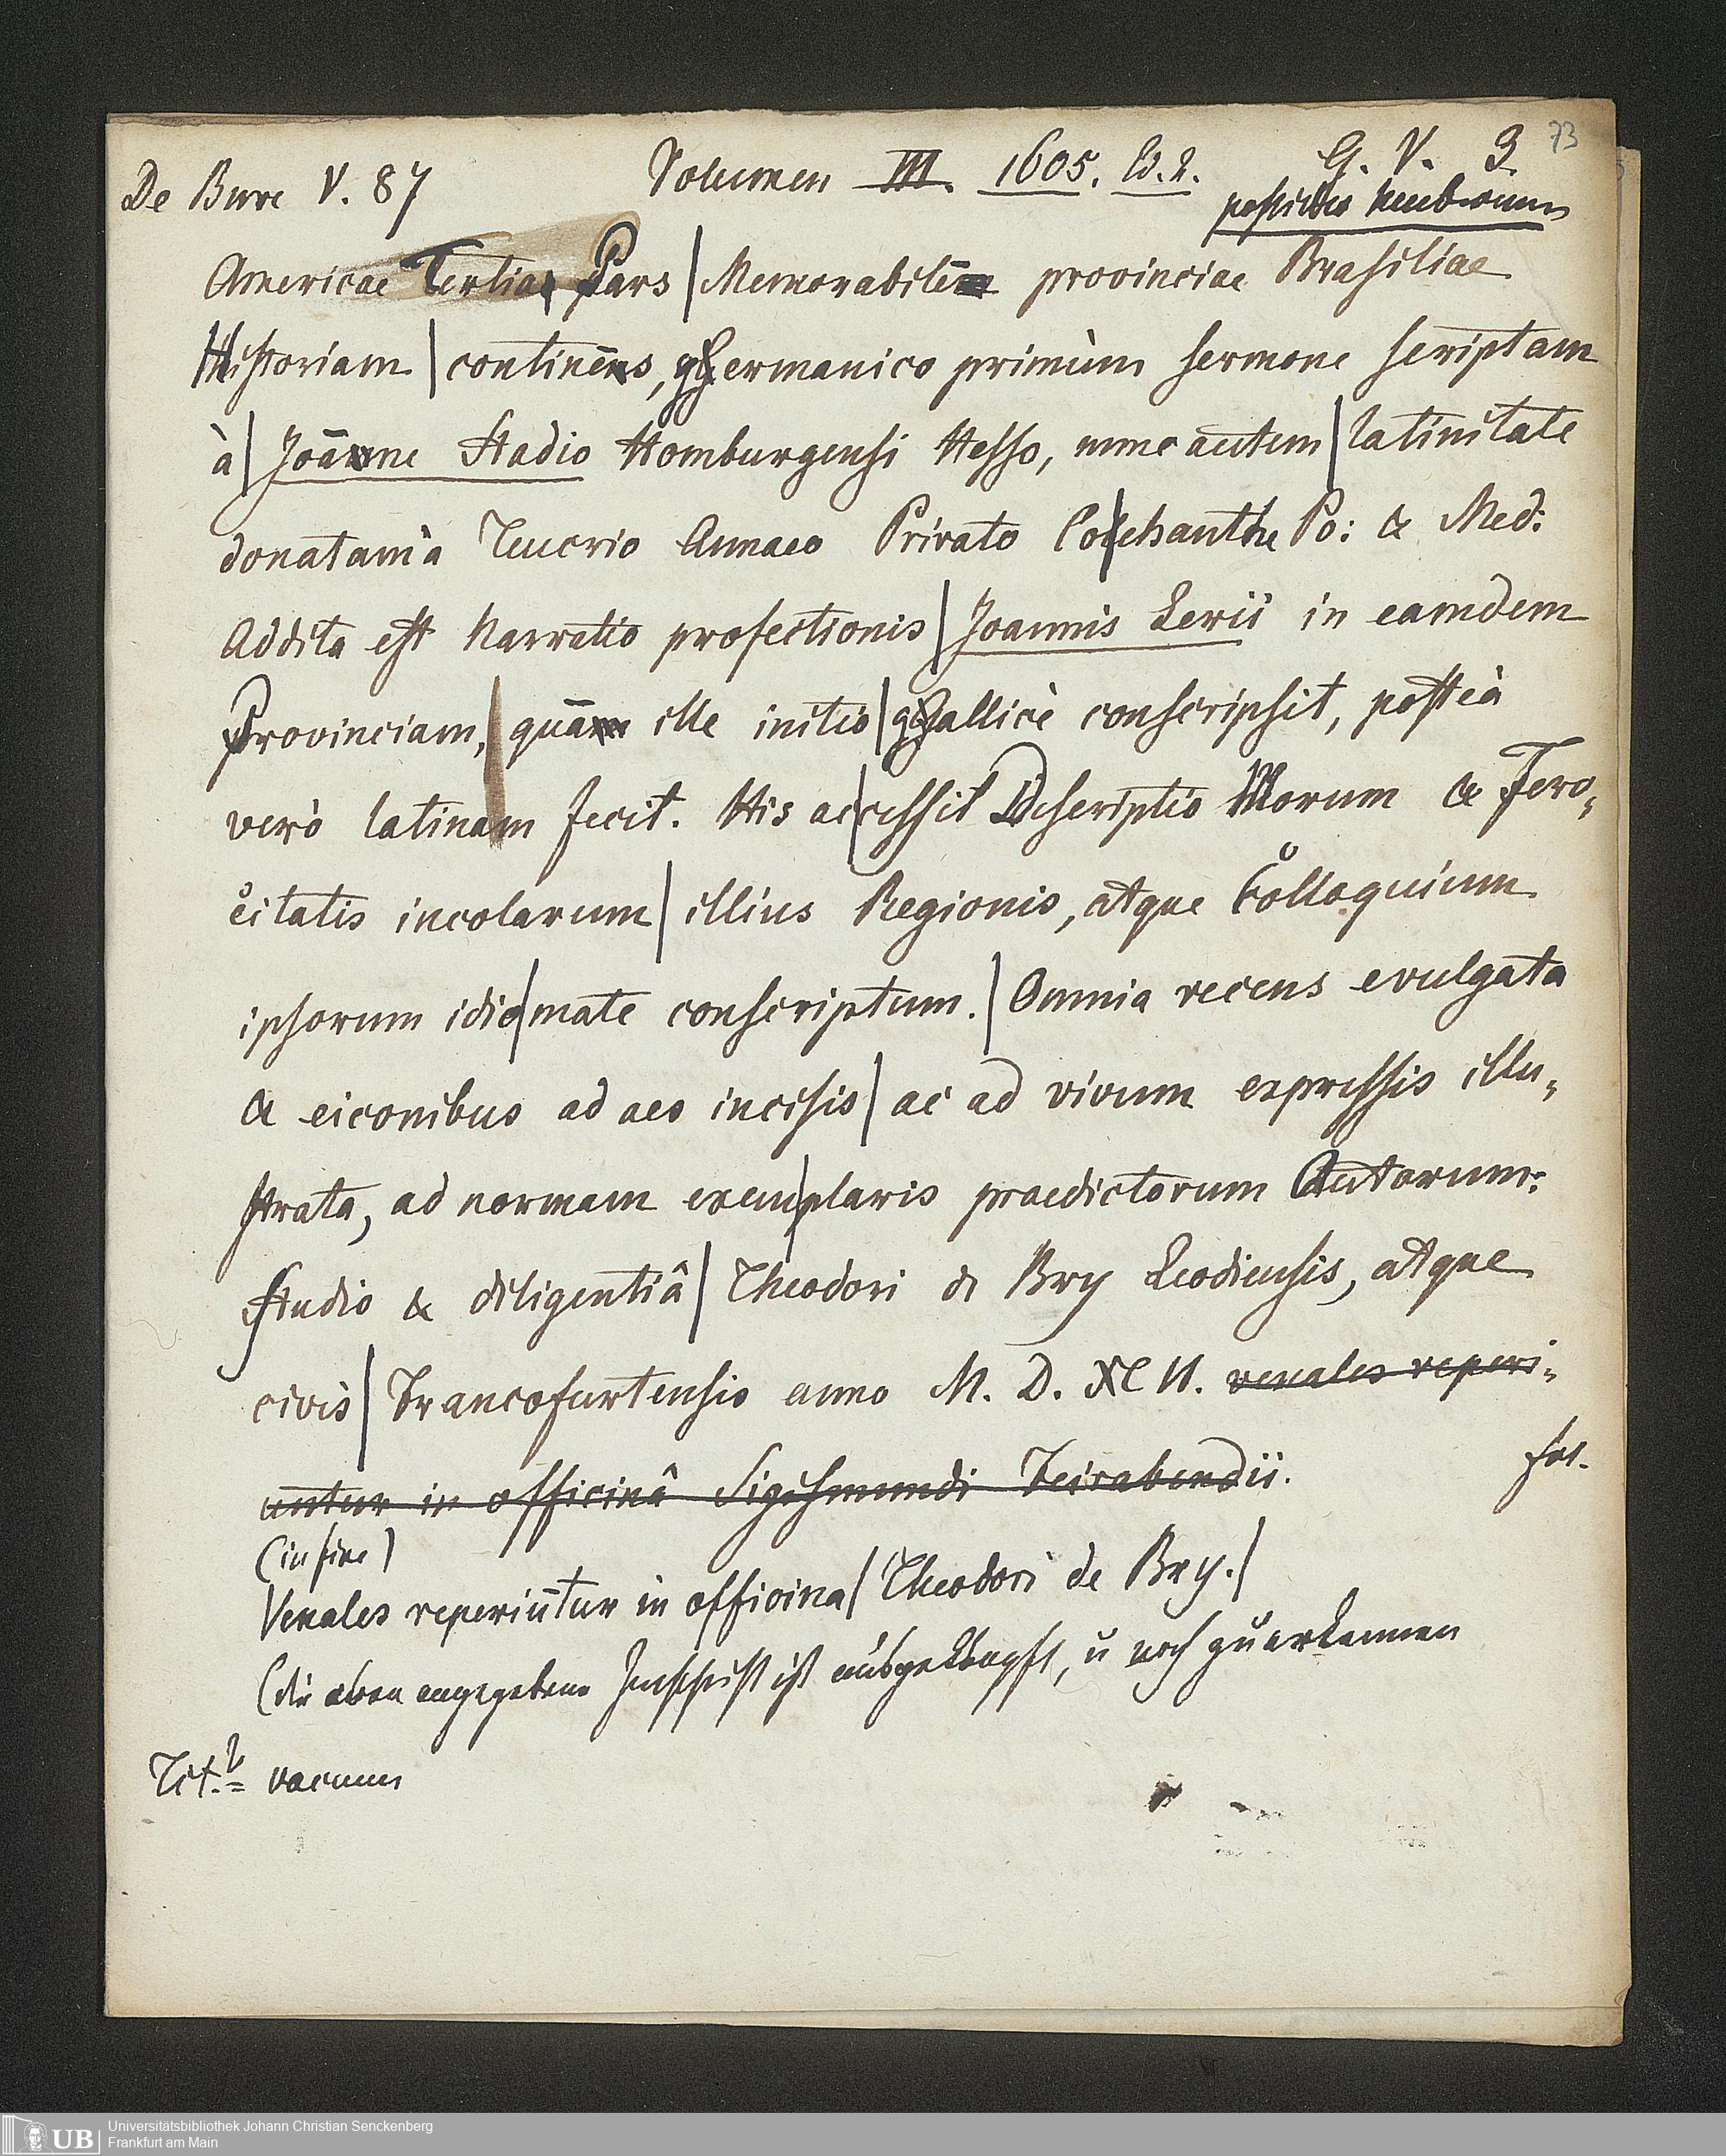 73
De Bure V. 87 Volumen III. 1605. Ed. 2. G. V. 3.
Americae Tertia Pars | Memorabilē provinciae Brasiliae
Historiam | continēs, germanico primùm sermone scriptam
à | Joāne Stadio Homburgensi Hesso, nunc autem | latinitate
donatam à Teucrio Annaeo Privato Col|chanthe Po: & Med:
Addita est Narratio profectionis | Joannis Lerii in eamdem
Provinciam, | quā ille initio | gallicè conscripsit, posteà
verò latinam fecit. His ac|cessit Descriptio Morum & Fero„
citatis incolarum | illius Regionis, atque Colloquium
ipsorum idio|mate conscriptum. | Omnia recens evulgata
& eiconibus ad aes incisis | ac ad vivum expressis illu„
strata, ad normam exem|plaris praedictorum Autorum:
Studio & diligentiâ | Theodori de Bry Leodiensis, atque
civis | Francofurtensis anno M. D. XCII. venales reperi„
untur in officinâ Sigismundi Feirabendii. fol.
(in fine)
Venales reperiūtur in officina | Theodori de Bry. |
(die oben angegebene Innschrift ist ausgeklopft, u noch zu erkennen
Tit. 2 vacuum
Universitätsbibliothek Johann Christian Senckenberg
Frankfurt am Main
UB